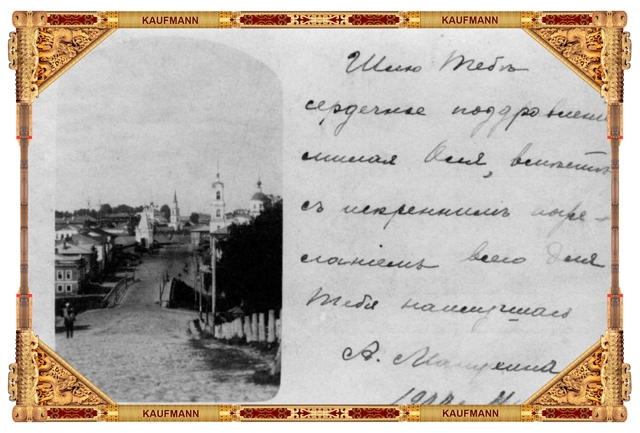 KAUFMANN KAUFMANN
Шлю Тебѣ
сердечное поздравлені
милая Оля, вмѣстѣ
съ искреннимъ поже-
ланіемъ всего для
Тебя наилучшаго
А.
KAUFMANN KAUFMANN